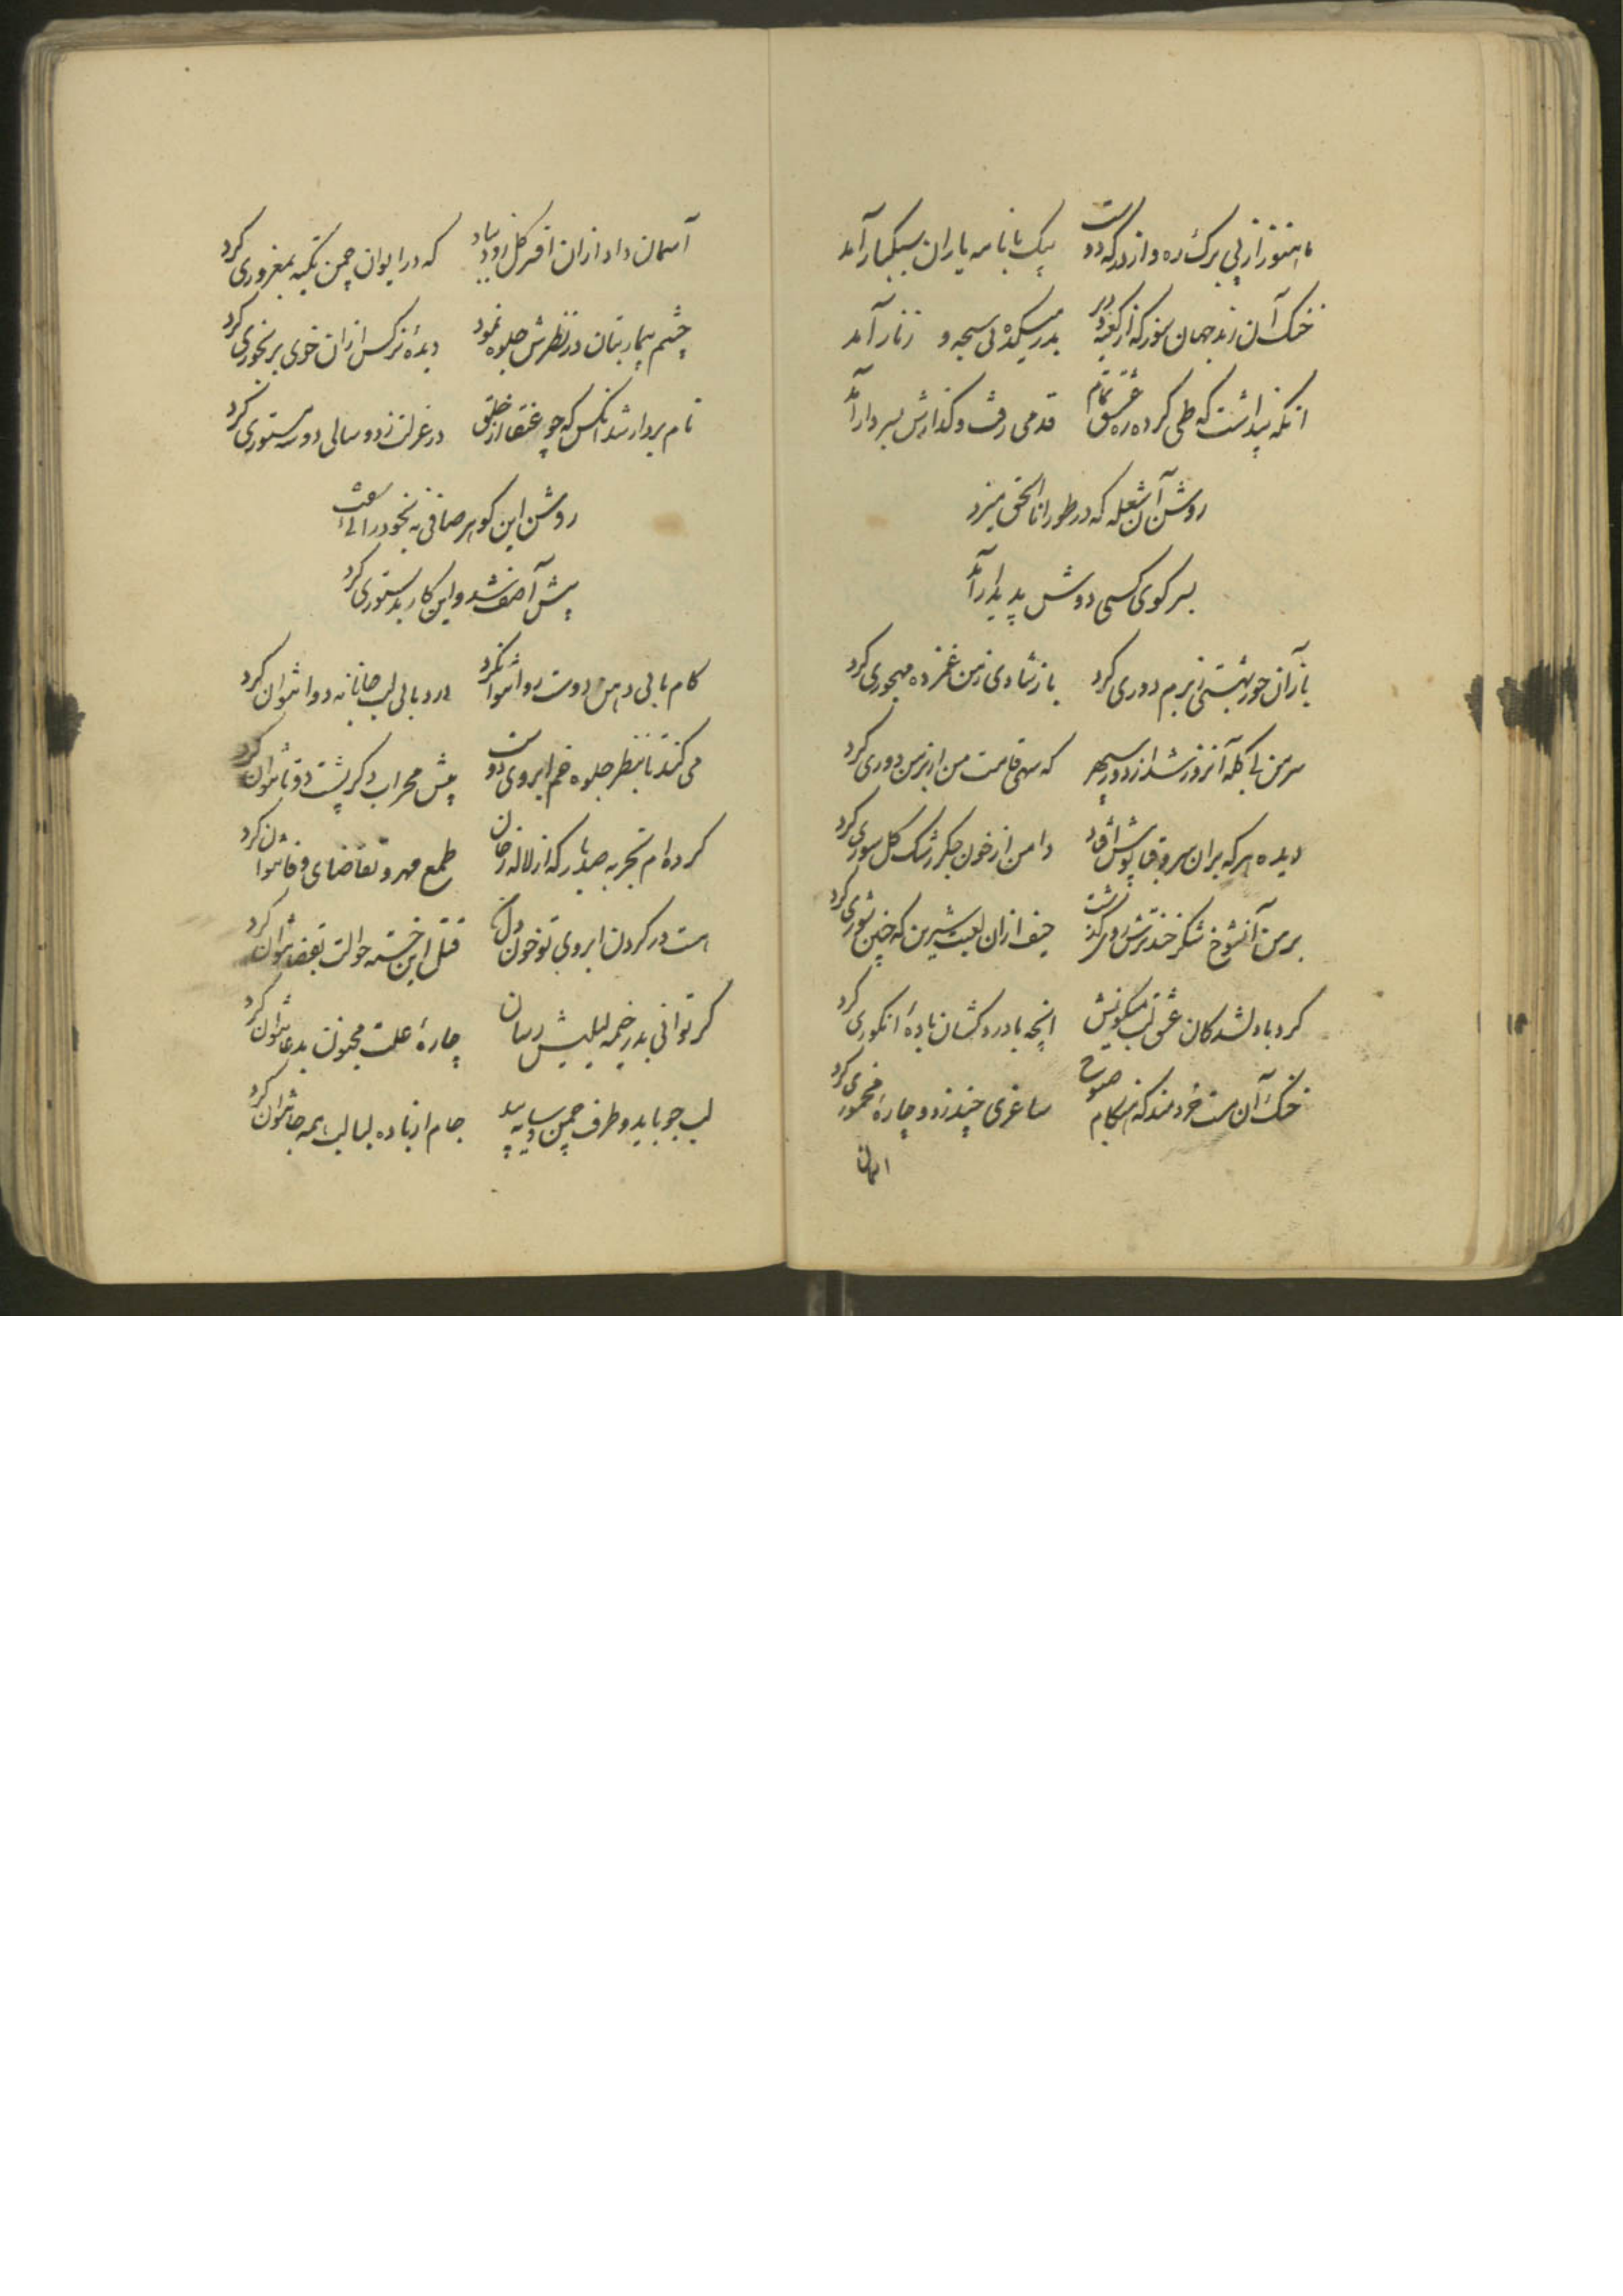 ما هنوز از پی برک ره و از درکه دوست پیک با نامه یاران سبکبار آمد
خنک آن رند جهان سوز که از کعبه و دیر بدر میکده بی سبحه و زنار آمد
انکه پنداشت که طی کرده ره عشق تمام قدمی رفت و کذارش بسر دار آمد
روشن آن شعله که در طور انا الحق میزد
بسر کوی کسی دوش پدیدار آمد
باز آن حور بهشتی ز برم دوری کرد باز شادی ز من غمزده مهجوری کرد
سر من با کله آنروز شد از دور سپهر که سهی قامت من از بر من دوری کرد
دیده هر که بران سرو قبا پوش افتاد دامن از خون جکر رشک کل سوری کرد
بر من آنشوخ شکر خند ترش روی کذشت حیف ازان لعبت شیرین که چنین شوری کرد
کرد با دلشدکان عشق لب میکونش انچه با دردکشان بادهٔ انکوری کرد
خنک آن مست خردمند که هنکام صبوح ساغری چند زد و چارهٔ مخموری کرد
آسمان داد ازان افسر کل زود بباد که در ایوان چمن تکیه بمغروری کرد
چشم بیمار بتان در نظرش جلوه نمود دیدهٔ نرکس ازان خوی برنجوری کرد
نام بردار شد انکس که چو عنقا از خلق در عزلت زد و سالی دو سه مستوری کرد
روشن این کوهر صافی نه بخود رای سفت
پیش آصف شد و این کار بدستوری کرد
کام با بی دهن دوست روا نتوان کرد درد با بی لب جانانه دوا نتوان کرد
می کند تا بنظر جلوه خم ابروی دوست پیش محراب دکر پشت دوتا نتوان کرد
کرده ام تجربه صد بار که از لاله رخان طمع مهر و تقاضای وفا نتوان کرد
هست در کردن ابروی تو خون دل ما قتل این خسته حوالت بقضا نتوان کرد
کر توانی بدر خیمه لیلیش رسان چارهٔ علت مجنون بدعا نتوان کرد
لب جو باید و طرف چمن و سایه بید جام از باده لبالب همه جا نتوان کرد